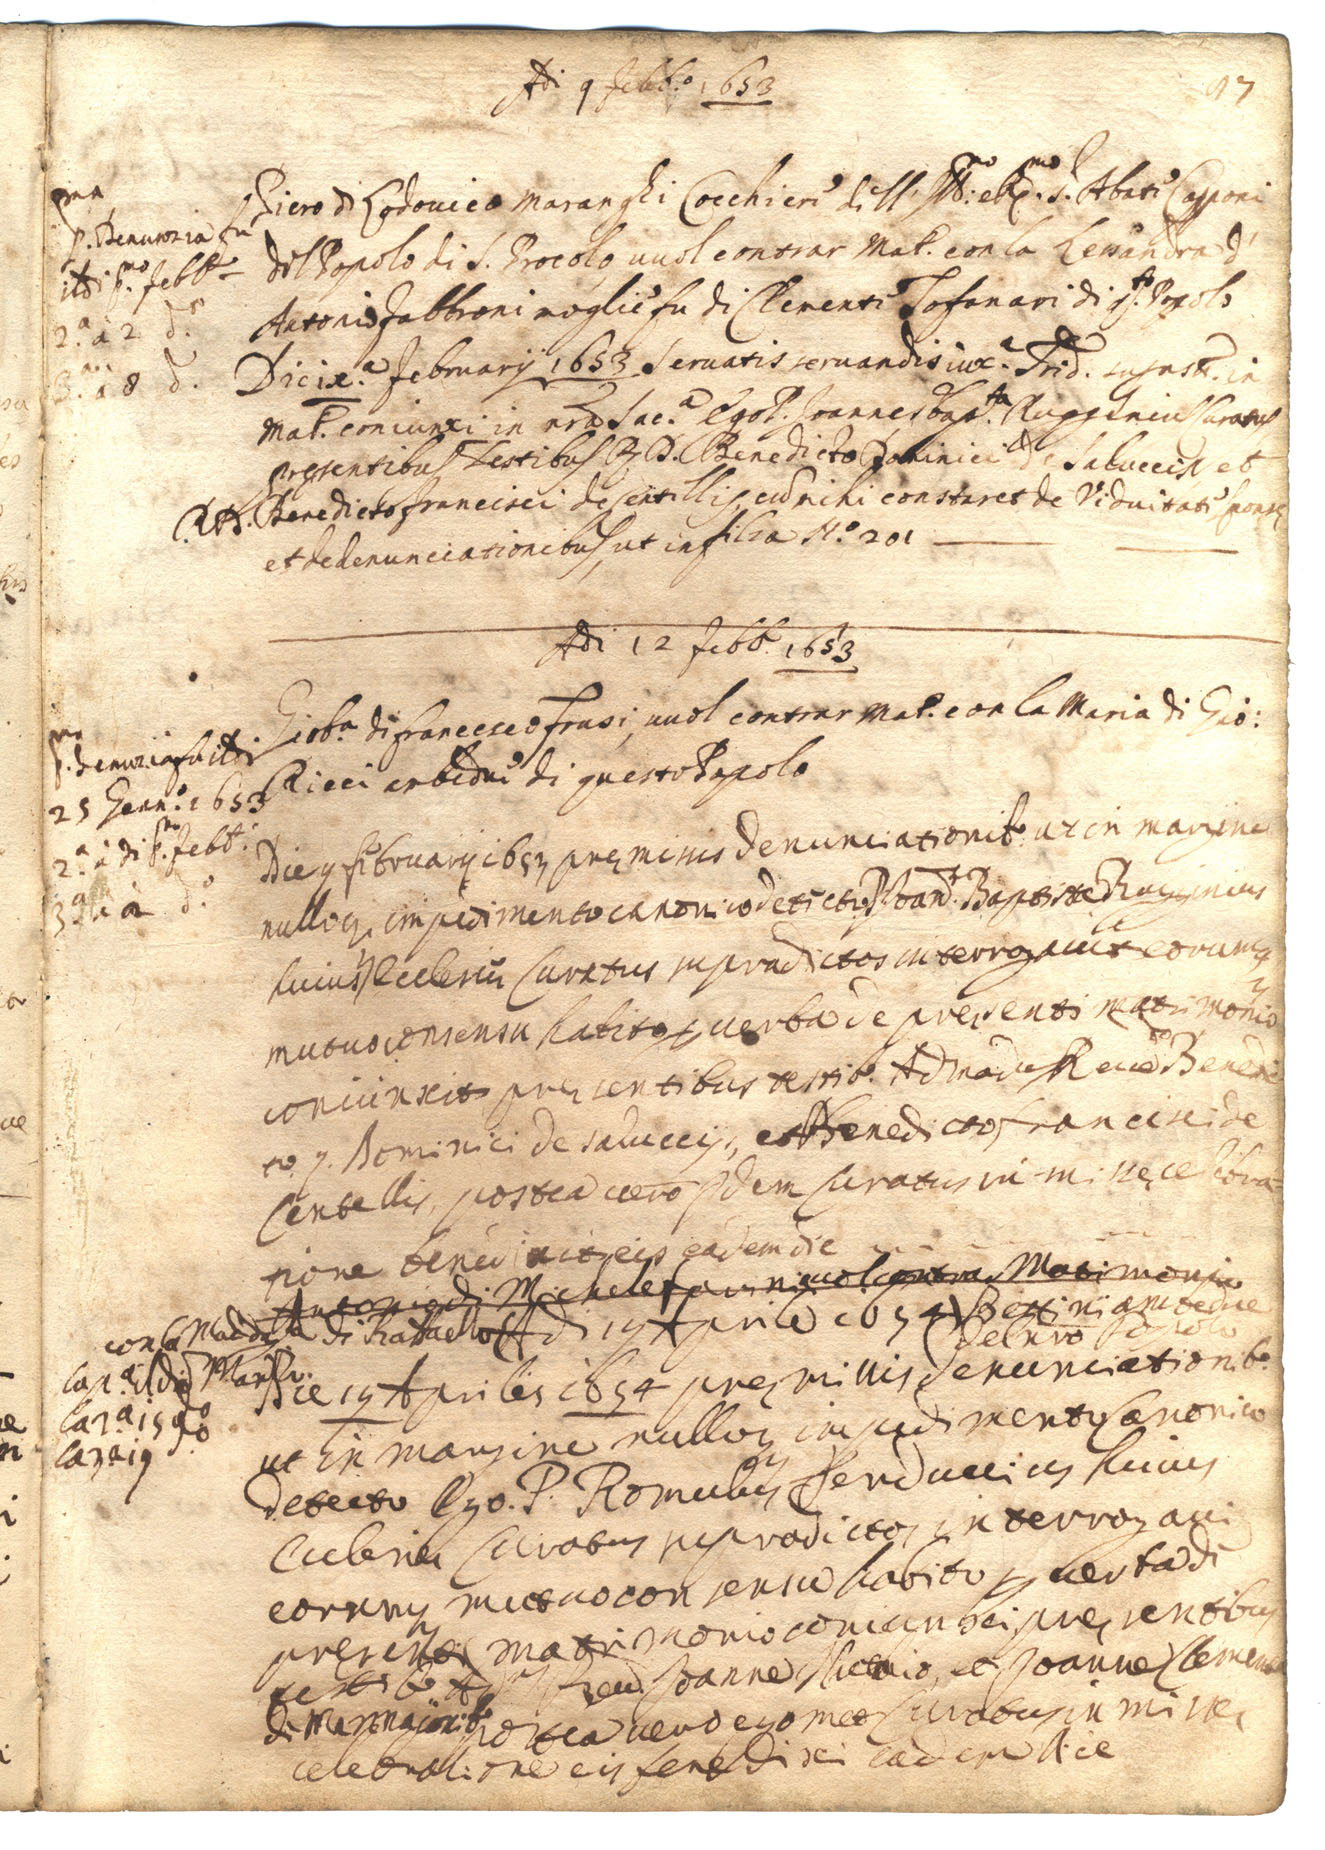 Adi 9 Febb.º 1653
97
p.ma
p. Denunzia fu
il dì p.mo Febb.º
2.ª a 2 d.º
3.ª a 8 d.
Piero di Lodovico Maranghi Cocchiere dell' Ill.mo e R.mo S. Abate Capponi
del Popolo di S. Procolo vuol contrar Mat. con la Lessandra d'
Antonio Fabbroni moglie fu di Clemente Tofanari di q.to Popolo
Die ix.ª February 1653 Servatis servandis iux.ª Trid. in
Mat. coniunxi in nra Ecc.ª Ego P. Joannes Bap.ta Rugginius Curatus
presentibus testibus R. D. Benedicto Dominici de Saluccis et
Benedicto Francisci de Centellis, cum mihi constaret de Viduitate sponse
et de denunciationibus, ut in filza N.º 201
Adi 12 Febb. 1653
p.ma
p. denunzia fu il dì
25 Genn.º 1653
2.ª a dì p.mo Febb.º
3.ª a d.º
Giob.ª di Francesco Frusi, vuol contrar Mat. con la Maria di Gio:
Ricci ambedue di questo Popolo
Die 9 february 1653 premissis denunciationib. ut in margine
nulloq. impedimento canonico detecto P. Joan. Baptista Rugginius
huius Ecclesie Curatus supradictos interrogavit eorumq
mutuo consensu habito p verba de presenti matrimonio
coniunxit presentibus testib. Admodu Reu.do Benedi
to q. Dominici de Saluccis, et Benedicto Francisci de
Centellis, postea vero Idem Curatus in misse celebra
tione benedixit eis eadem die
Antonio di Michele vuol contrar Matrimonio
con la Madd.ª di Raffaello Adi 19 Aprile 1654 Bettini ambedue
del nro Popolo
la p.ª il dì Marzo
la 2.ª 15 d.º
la 3.ª 19 d.º
Die 19 Aprilis 1654 premissis denunciationib.
ut in margine nulloq impedimento Canonico
detecto Ego. P. Romulus Perduccius huius
Ecclesie Curatus supradictos interrogavi
eorumq mutuo consensu habito p verba di
presenti matrimonio coniunxi presentibus
testib. Reu. Joanne et Joanne Clemente
di postea vero ego met Curatus in misse
celebratione eis benedixi eadem die